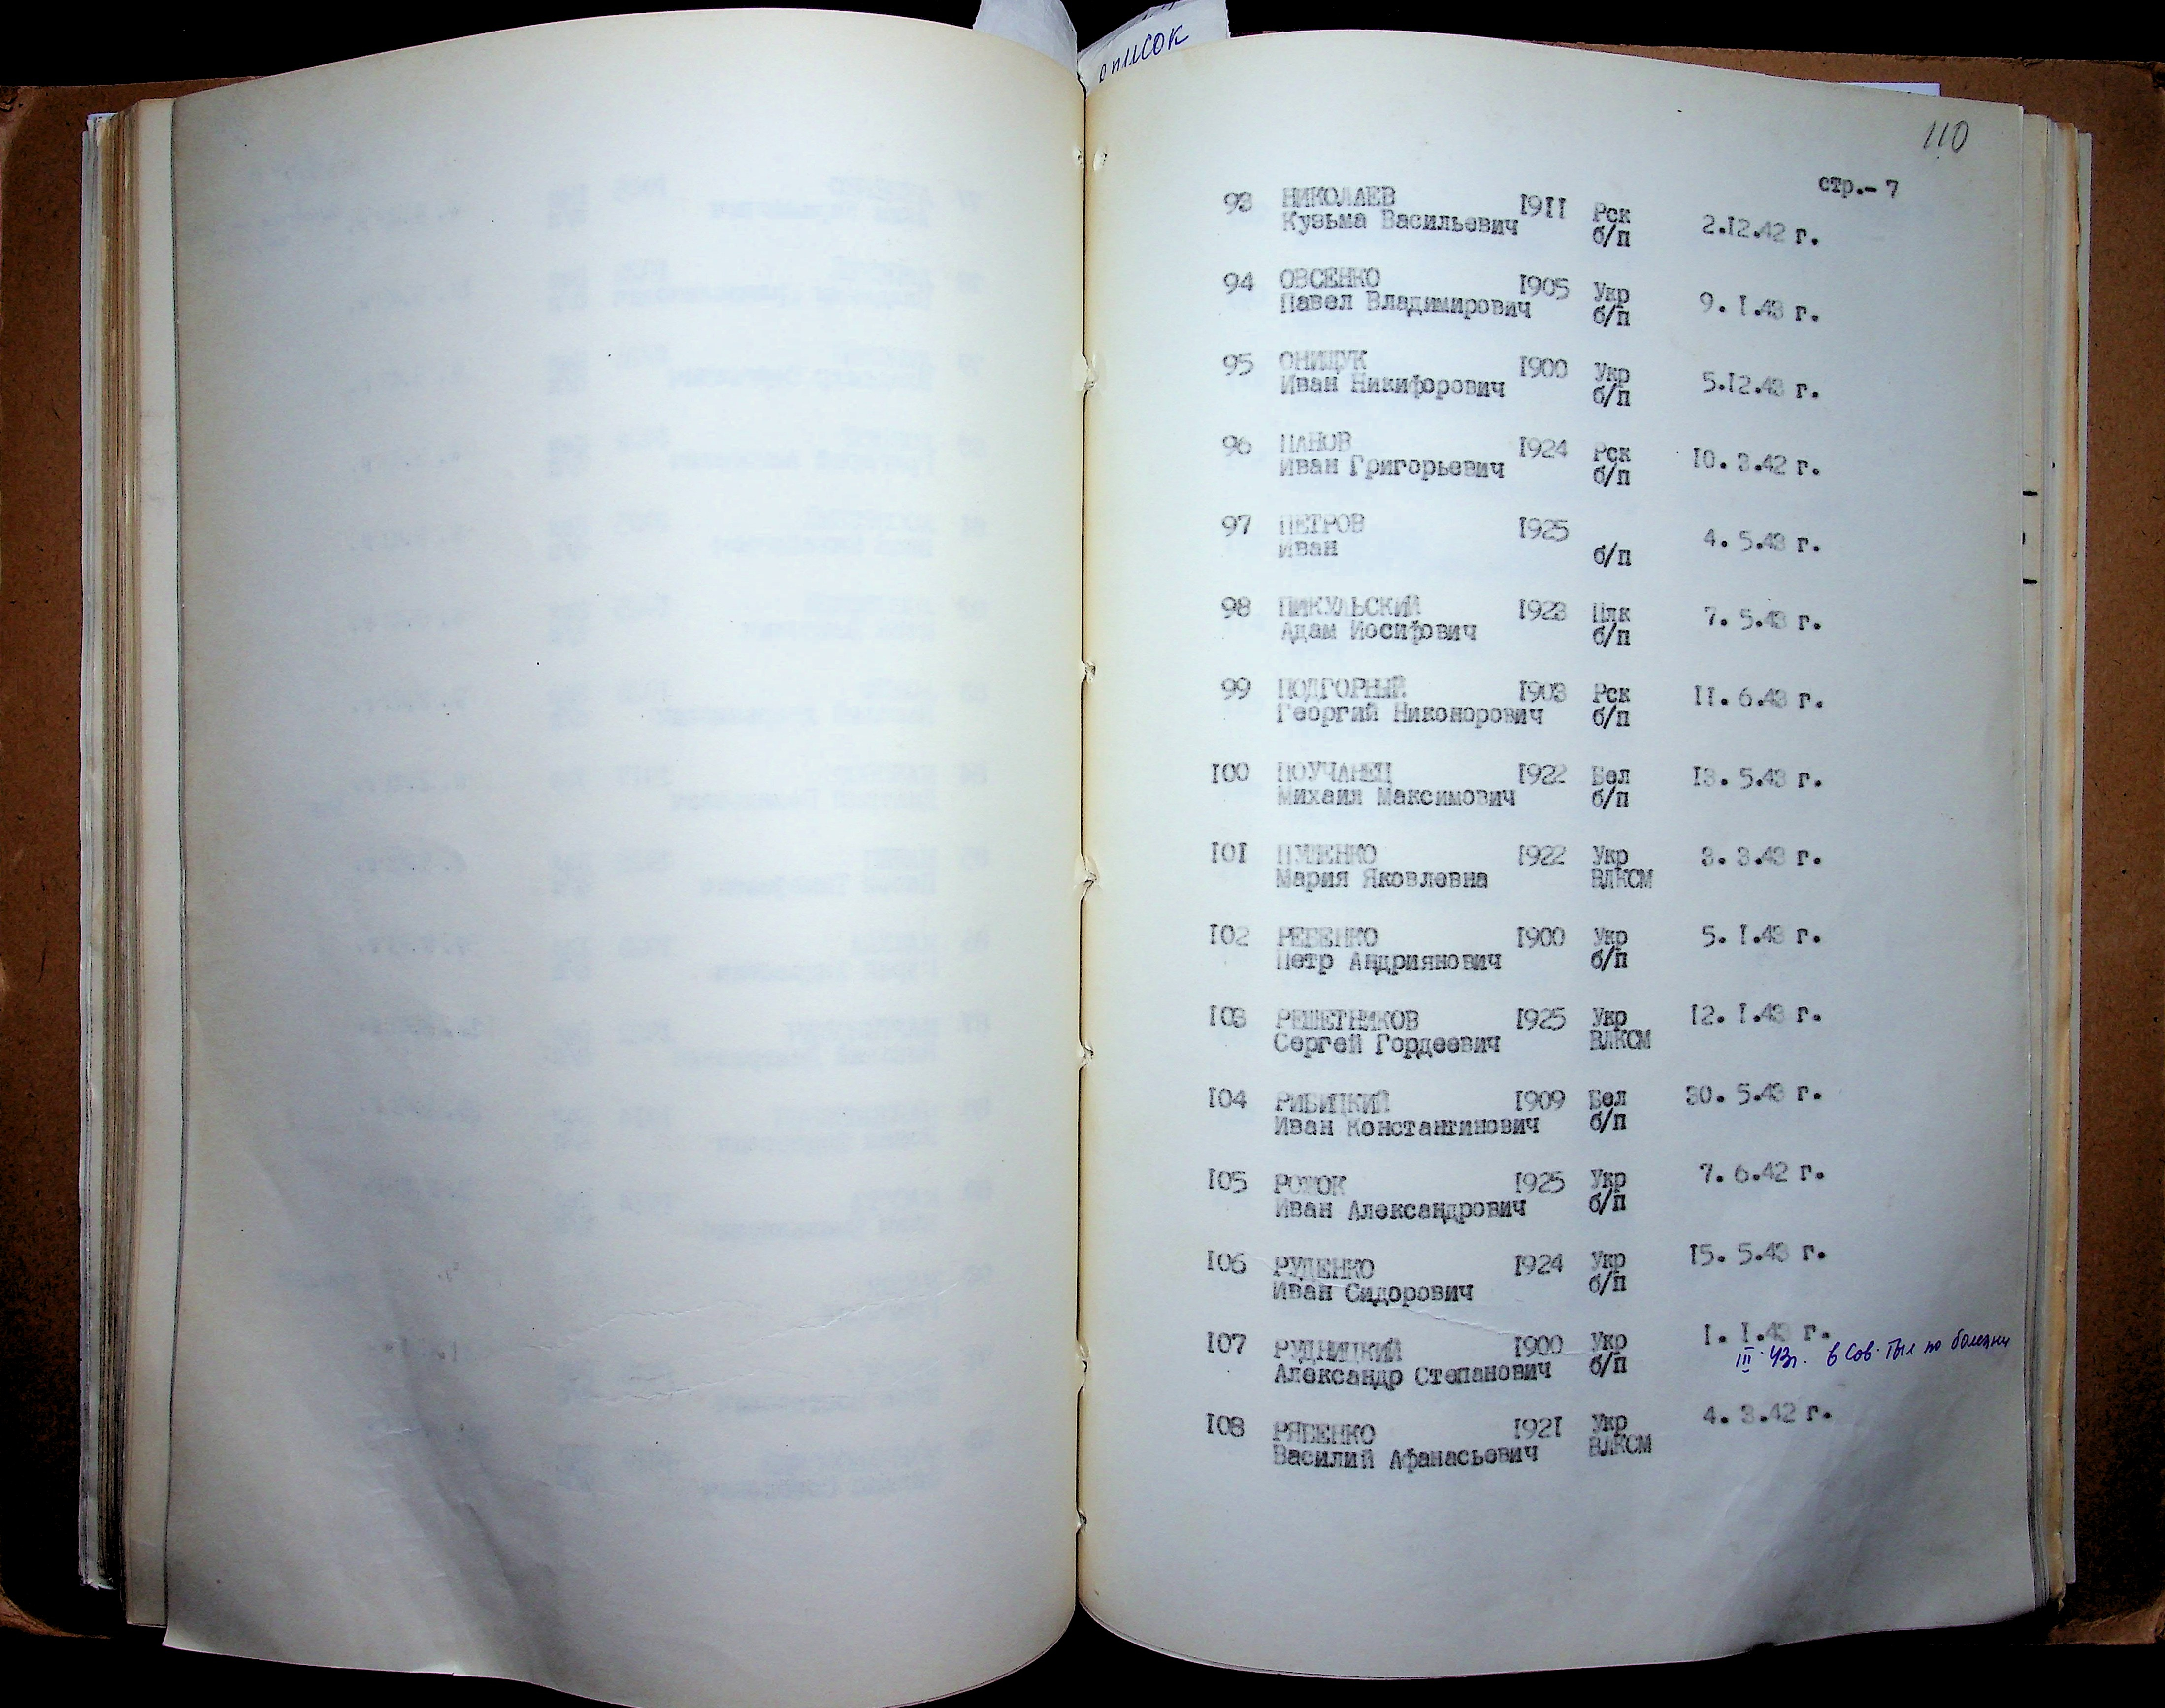 список
110
стр.- 7
93 НИКОЛАЕВ 1911 Рск
Кузьма Васильевич б/п 2.12.42 г.
94 ОВСЕНКО 1905 Укр
Павел Владимирович б/п 9. 1.43 г.
95 ОНИЩУК 1900 Укр
Иван Никифорович б/п 5.12.43 г.
96 ПАНОВ 1924 Рск 10. 3.42 г.
Иван Григорьевич б/п
97 ПЕТРОВ 1925 4. 5.43 г.
Иван б/п
98 ПИКУЛЬСКИЙ 1923 Плк 7. 5.43 г.
Адам Иосифович б/п
99 ПОДГОРНЫЙ 1903 Рск 11. 6.43 г.
Георгий Никонорович б/п
100 ПОУЧАНЕЦ 1922 Бел 13. 5.43 г.
Михаил Максимович б/п
101 1922 Укр 3. 3.43 г.
Мария Яковлевна ВЛКСМ
102 РЕБЕНКО 1900 Укр 5. 1.43 г.
Петр Андриянович б/п
103 РЕШЕТНИКОВ 1925 Укр 12. 1.43 г.
Сергей Гордеевич ВЛКСМ
104 РИБИЦКИЙ 1909 Бел 30. 5.43 г.
Иван Константинович б/п
105 1925 Укр 7. 6.42 г.
Иван Александрович б/п
106 РУДЕНКО 1924 Укр 15. 5.43 г.
Иван Сидорович б/п
107 РУДНИЦКИЙ 1900 Укр 1. 1.43 г.
Александр Степанович б/п III. 43г. в Сов. тыл по болезни
108 РЯБЕНКО 1921 Укр 4. 3.42 г.
Василий Афанасьевич ВЛКСМ